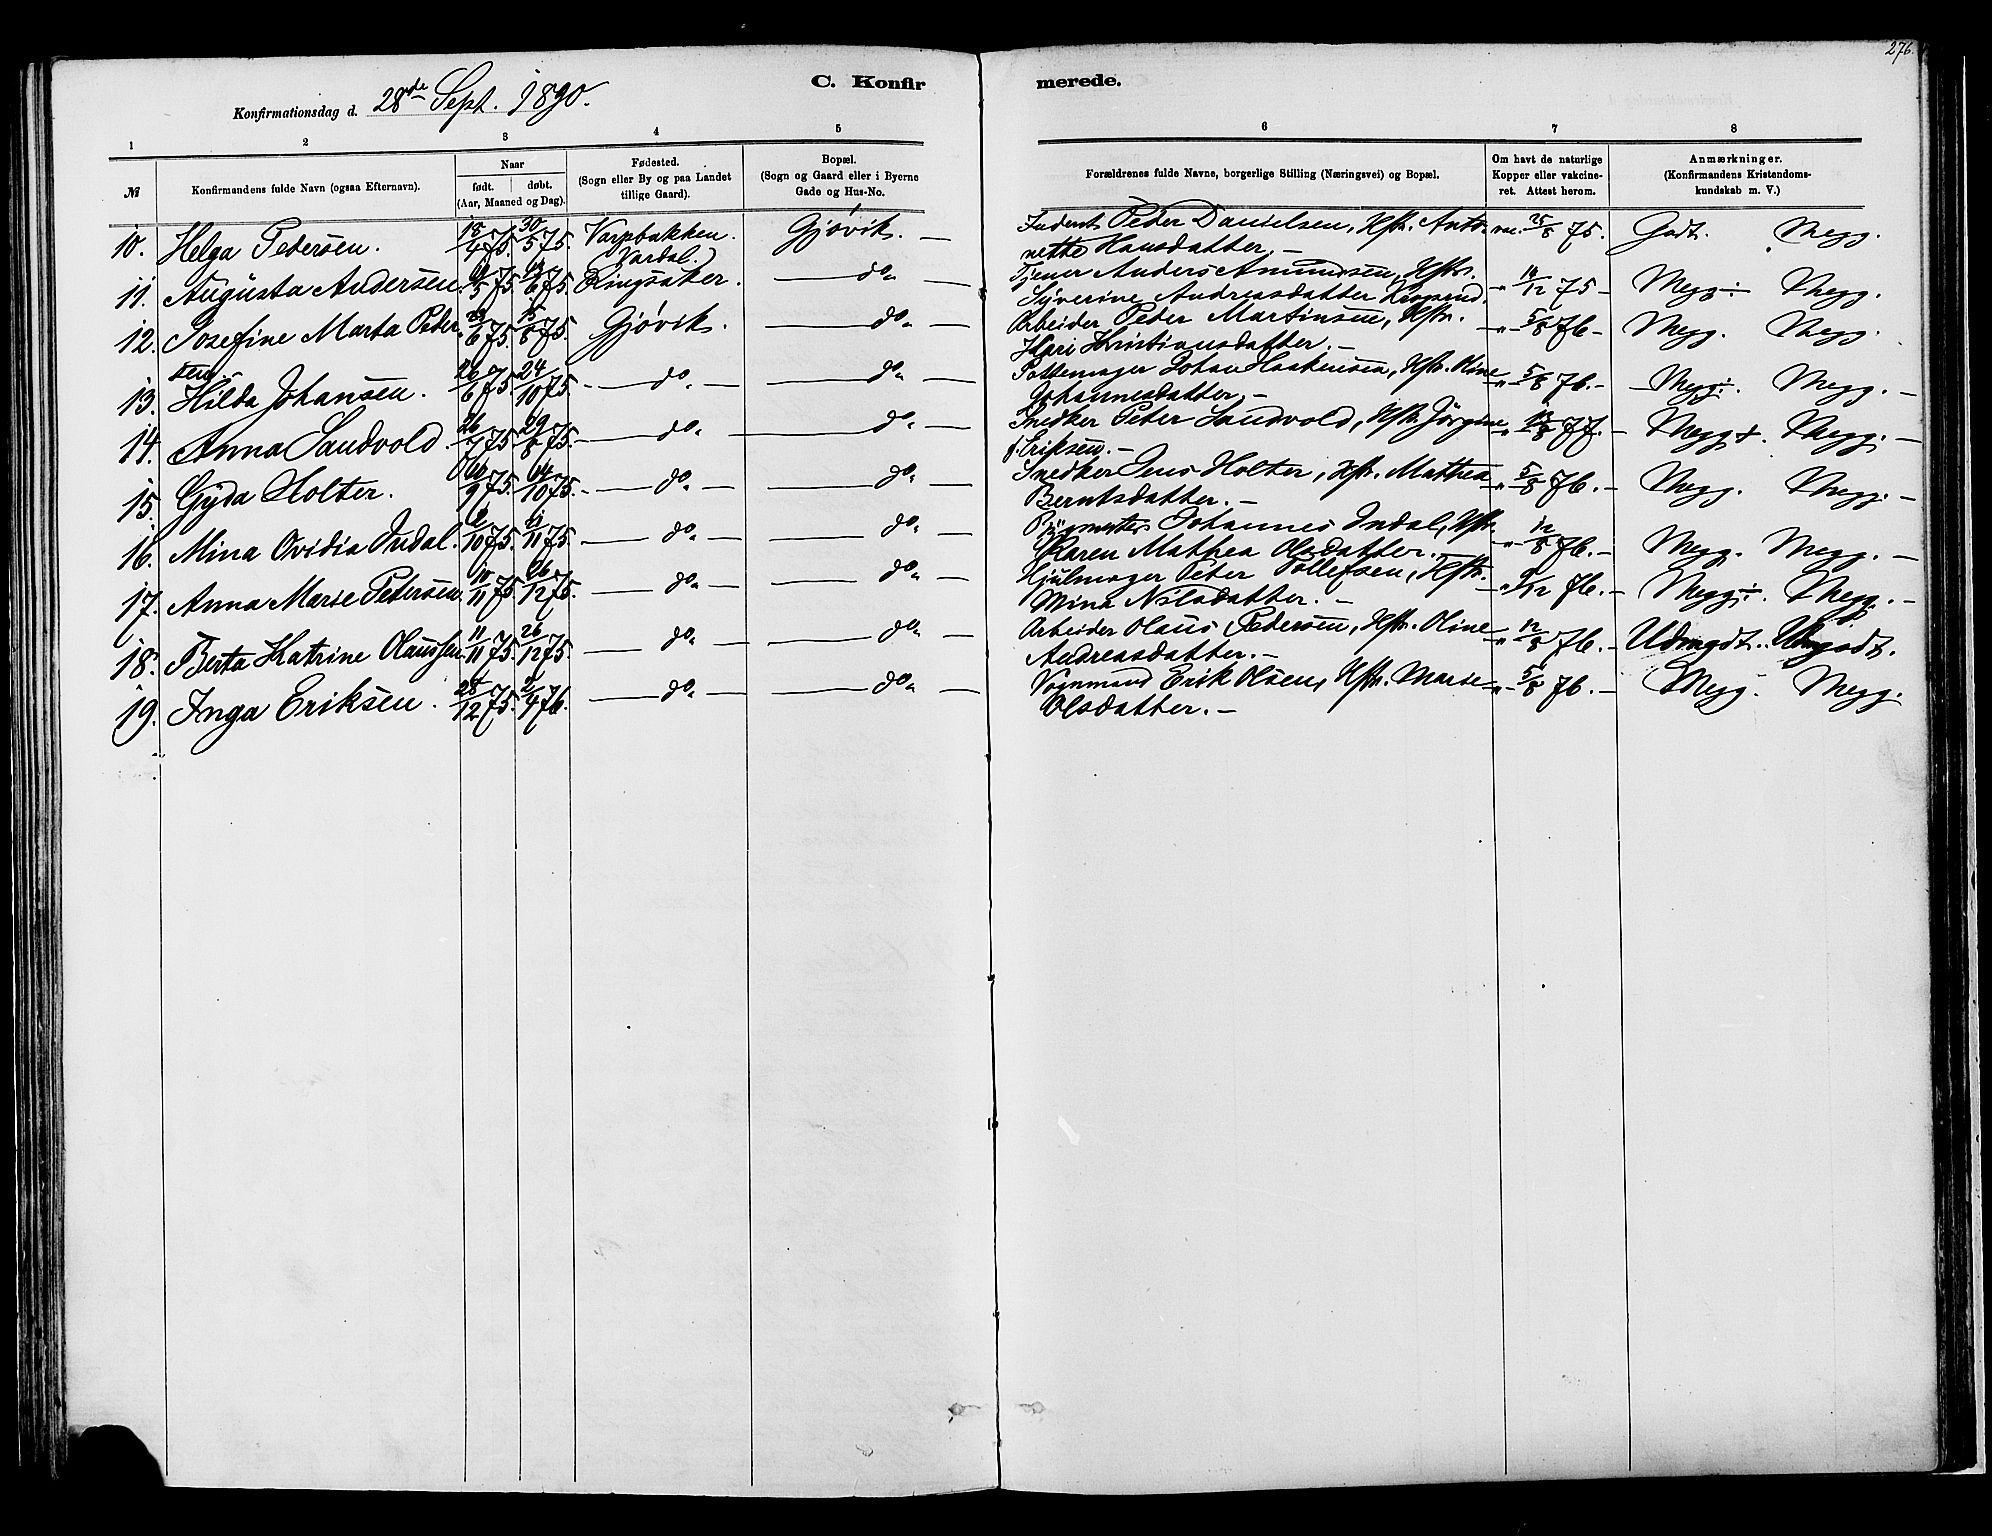 276.
C. Konfirmerede.
Konfirmationsdag d. 28de Sept. 1890.
1 2 3 4 5 6 7 8
№ Konfirmandens fulde Navn (ogsaa Efternavn). Naar født. døbt. (Aar, Maaned og Dag). Fødested. (Sogn eller By og paa Landet tillige Gaard). Bopæl. (Sogn og Gaard eller i Byerne Gade og Hus-No. Forældrenes fulde Navne, borgerlige Stilling (Næringsvei) og Bopæl. Om havt de naturlige Kopper eller vakcineret. Attest herom. Anmærkninger. (Konfirmandens Kristendomskundskab m. V.)
10. Helga Pedersen. 18/4 75. 30/5 75. Varpbakken. Gjøvik. — Peder Danielsen, Hstr. Anto- 25/8 75. Godt. Megg.
Vardal.) nette Hansdatter. —
11. Augusta Andersen. /5 75. /6 75. Ringsaker. — do — Tjener Anders Amundsen, Hstr. /12 75 — Megg ÷ Megg.
Syverine Andreasdatter
12. Josefine Marta Peder- /6 75. 15/8 75. Gjøvik. — do — Arbeider Peder Martinsen, Hstr. — " — 5/8 76 — Megg. Megg.
sen. Kari Kristiansdatter. —
13. Hilda Johansen. 26/6 75. 24/10 75. — do — — do — Johan Haakensen, Hstr. Oline — " — 5/8 76. — Megg ÷. Megg. —
Johannesdatter. —
14. Anna Sandvold. 26/7 75. 29/8 75. — do — — do — Snedker Peter Sandvold, Hstr. Jörgine — " — /8 77. — Megg +. Megg. —
f. Eriksen. —
15. Gyda Holter. /9 75. /10 75. — do — — do — Snedker Jens Holter, Hstr. Mathea — " — 5/8 76. — Megg. Megg. —
Berntsdatter. —
16. Mina Ovidia Indal. /10 75. /11 75. — do — — do — Johannes Indal, Hstr. — " — 12/8 76. — Megg. Megg. —
Karen Mathea Olsdatter. —
17. Anna Marie Petersen. 10/11 75. 26/12 75. — do — — do — Hjulmager Peter Tollefsen, Hstr. — " /12 76. — Megg ÷. Megg. —
Mina Nilsdatter. —
18. Berta Katrine Olaussen 11/11 75. 26/12 75. — do — — do — Arbeider Olaus Pedersen, Hstr. Oline — " — 12/8 76. — Udmgdt. Udmgodt.
Andreasdatter. —
19. Inga Eriksen. 28/12 75. 2/4 76. — do — — do — Vognmand Erik Olsen, Hstr. Marie — " — 5/8 76. — Megg. Megg.
Olsdatter. —